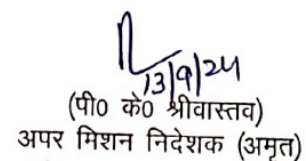 13/9/24
(पी0 के0 श्रीवास्तव)
अपर मिशन निदेशक (अमृत)